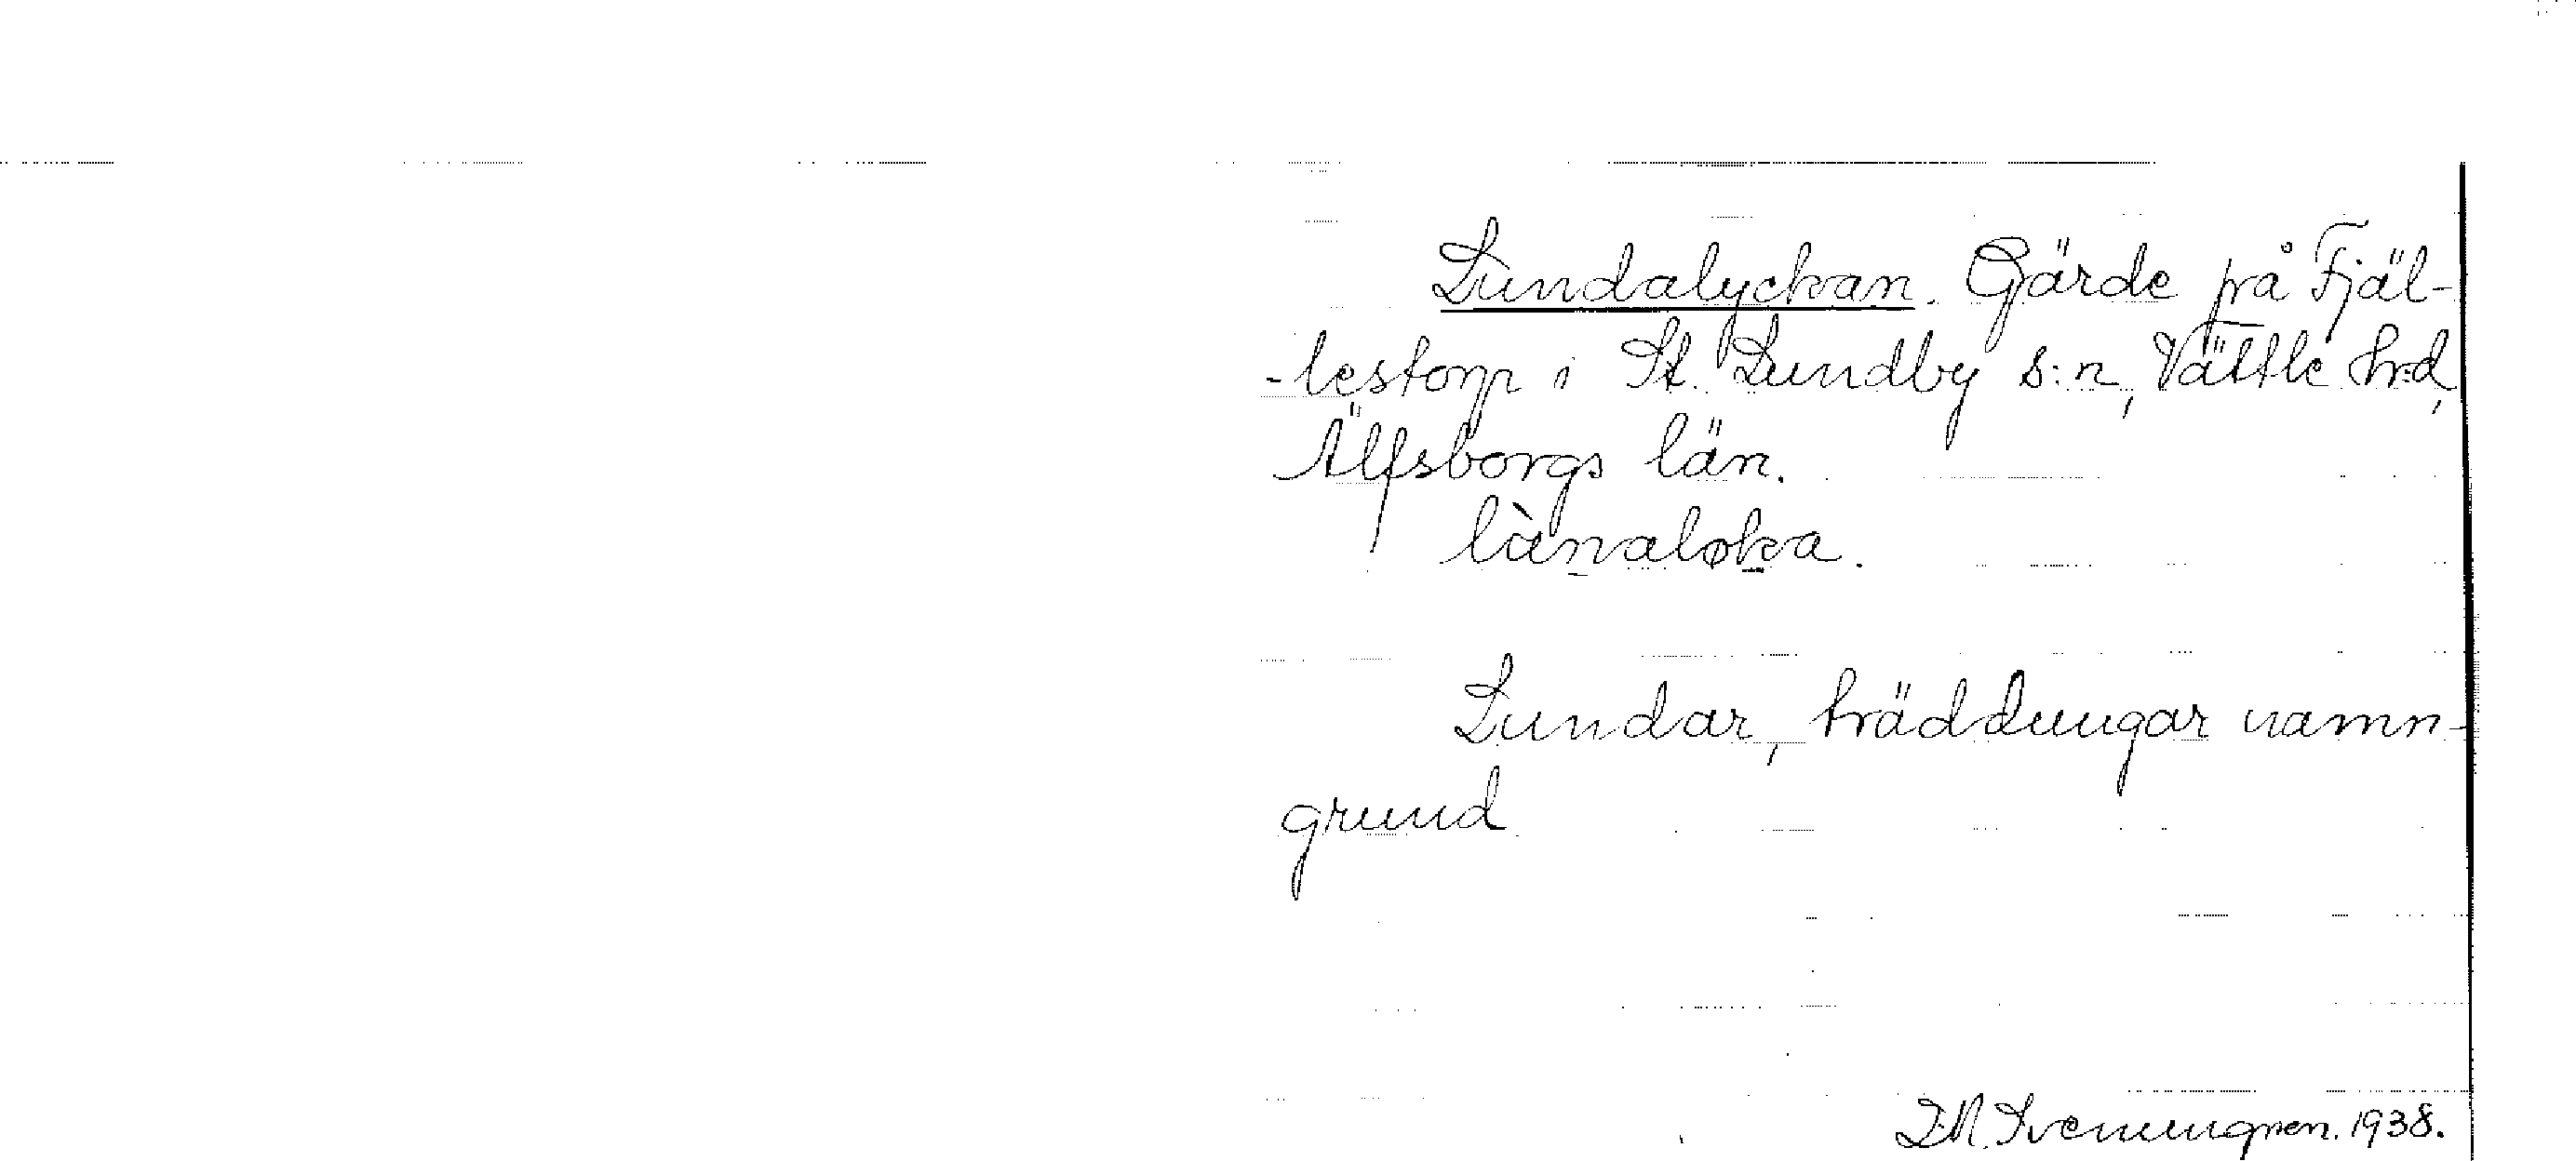 Lundalyckan. Gärde på Fjäl-
-lestorp i St. Lundby s:n, Vättle hd,
Älfsborgs län.
lànaløka.
Lundar, träddungar namn-
grund